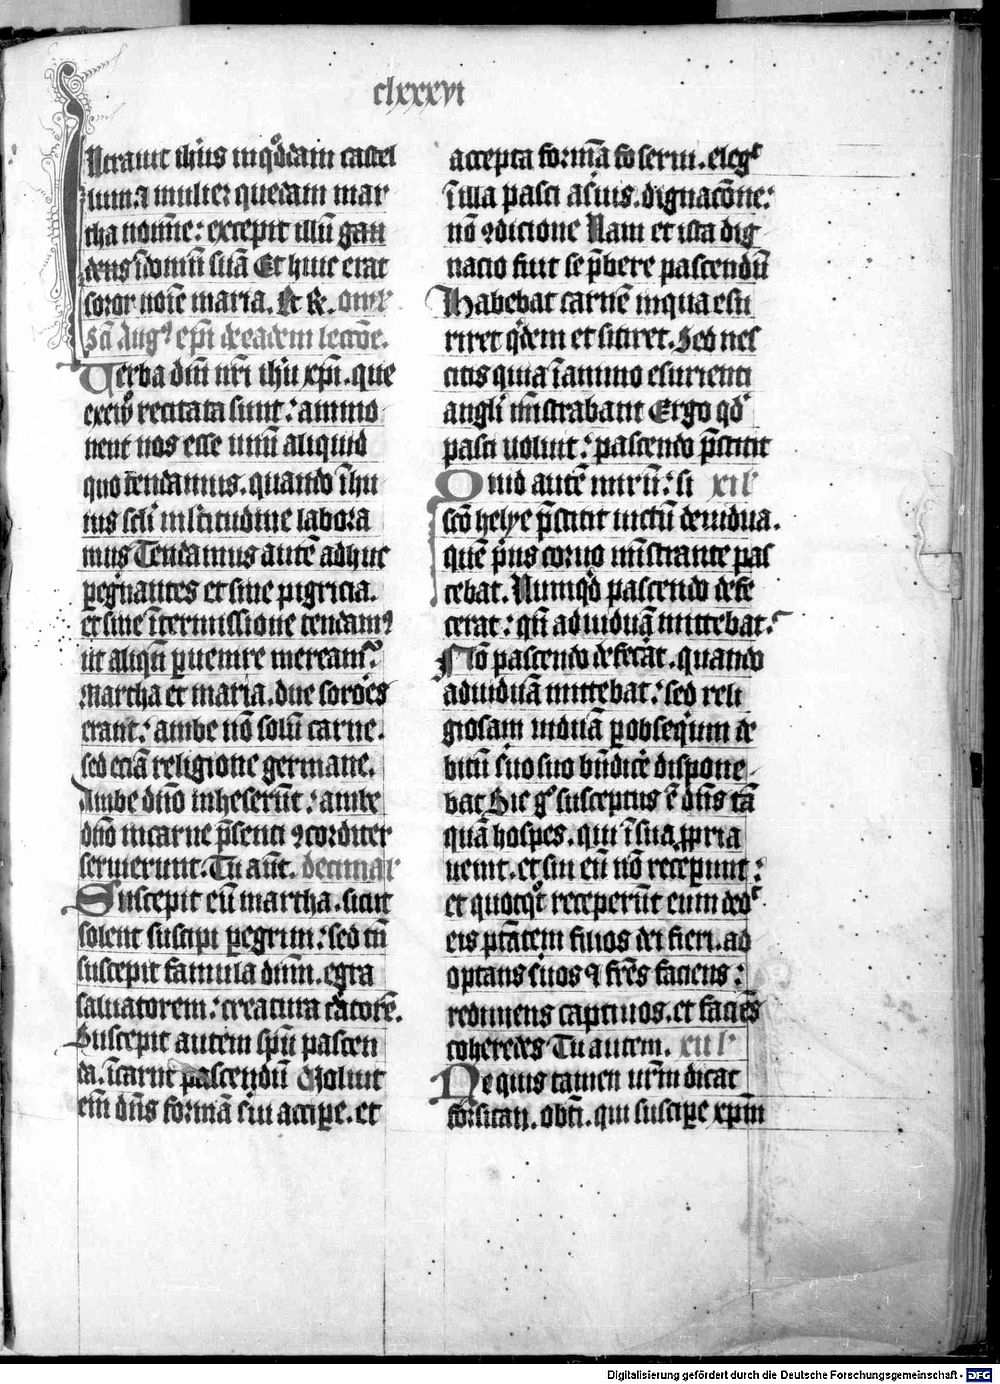 clxxxvi
Intrauit ih̄us inq̊ddam castel
lum: ⁊ mulier quedam mar
tha nomīe: excepit illū gau
dens ī domū suā Et huic erat
soror noīe maria. Et R. Om̄
Sc̄i Augꝰ ep̄i de eadem leccōe.
Verba dn̄i nr̄i ih̄u xp̄i. que
recitata sunt: ammo
nent nos esse unū aliquid
quo tendamus. quando ī hu
ius sc̄li multitudine labora
mus Tendamus autē adhuc
peg̾nantes et sine pigricia.
et sine īt̾missione tendamꝰ
ut aliqn̄ ꝑuenire mereamꝰ
Martha et maria. due sorōes
erant: ambe nō solū carne.
sed eciā religione germane.
Ambe dn̄o inheserūt: ambe
dn̄o in carne p̄senti ꝯcordit̾
seruierunt. Tu aūt. decima
Suscepit eū martha. sicut
solent suscipi pegrini: sed tn̄
suscepit famula dn̄m. egra
saluatorem: creatura c̾atorē.
Suscepit autem sp̄u pascen
da. ī carne pascendū Voluit
em̄ dn̄s formā s̾ui accipe. et
accepta formā ſo serui. eleg̾
ī illa pasci a s̾uis. dignacōne:
nō ꝯdicione Nam et ista dig
nacio fuit se p̄bere pascendū
Habebat carnē in qua esu
riret q̇dem et sitiret. Sed nes
citis quia ī animo esurienti
angli m̄strabant Ergo qd̾
pasci uoluit: pascendo p̄stitit
Quid autē mirū: si xii l̾
sc̄o helye p̄stitit uictū de uidua.
quē p̾us coruo m̄strante pas
cebat. Numq̇d pascendo defe
cerat: qn̄ ad uiduā mittebat:
Nō pascendo defec̾at. quando
ad uiduā mittebat: sed reli
giosam uiduā ꝑ obseq̇um de
bitū s̾uo suo bn̄dic̾e dispone
bat Sic g̾ susceptus ē dn̄s tā
quā hospes. qui ī sua ꝓpria
uenit. et sui eū nō recepunt:
et quotq̊t receperūt eum ded̾
eis ptātem filios dei fieri. ad
optans s̾uos ⁊ fr̄es faciens:
redimens captiuos. et faciēs
coheredes Tu autem. xii l̾
Ne quis tamen ur̄m dicat
forsitan. O bt̄i. qui suscipe xp̄m
Digitalisierung gefördert durch die Deutsche Forschungsgemeinschaft - DFG